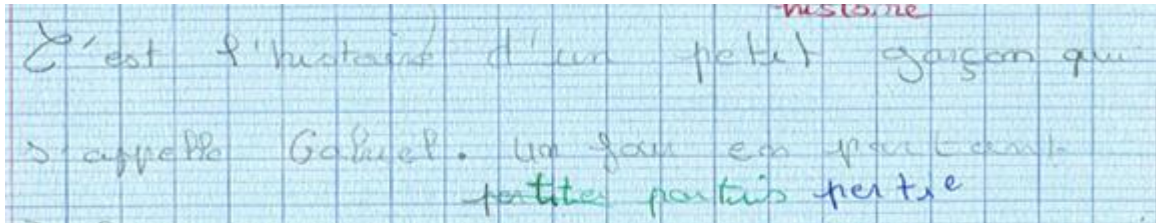 histoire
C'est l'histoire d'un petit garçon qui
s'appelle Gabriel. un jour en partant
partis partie